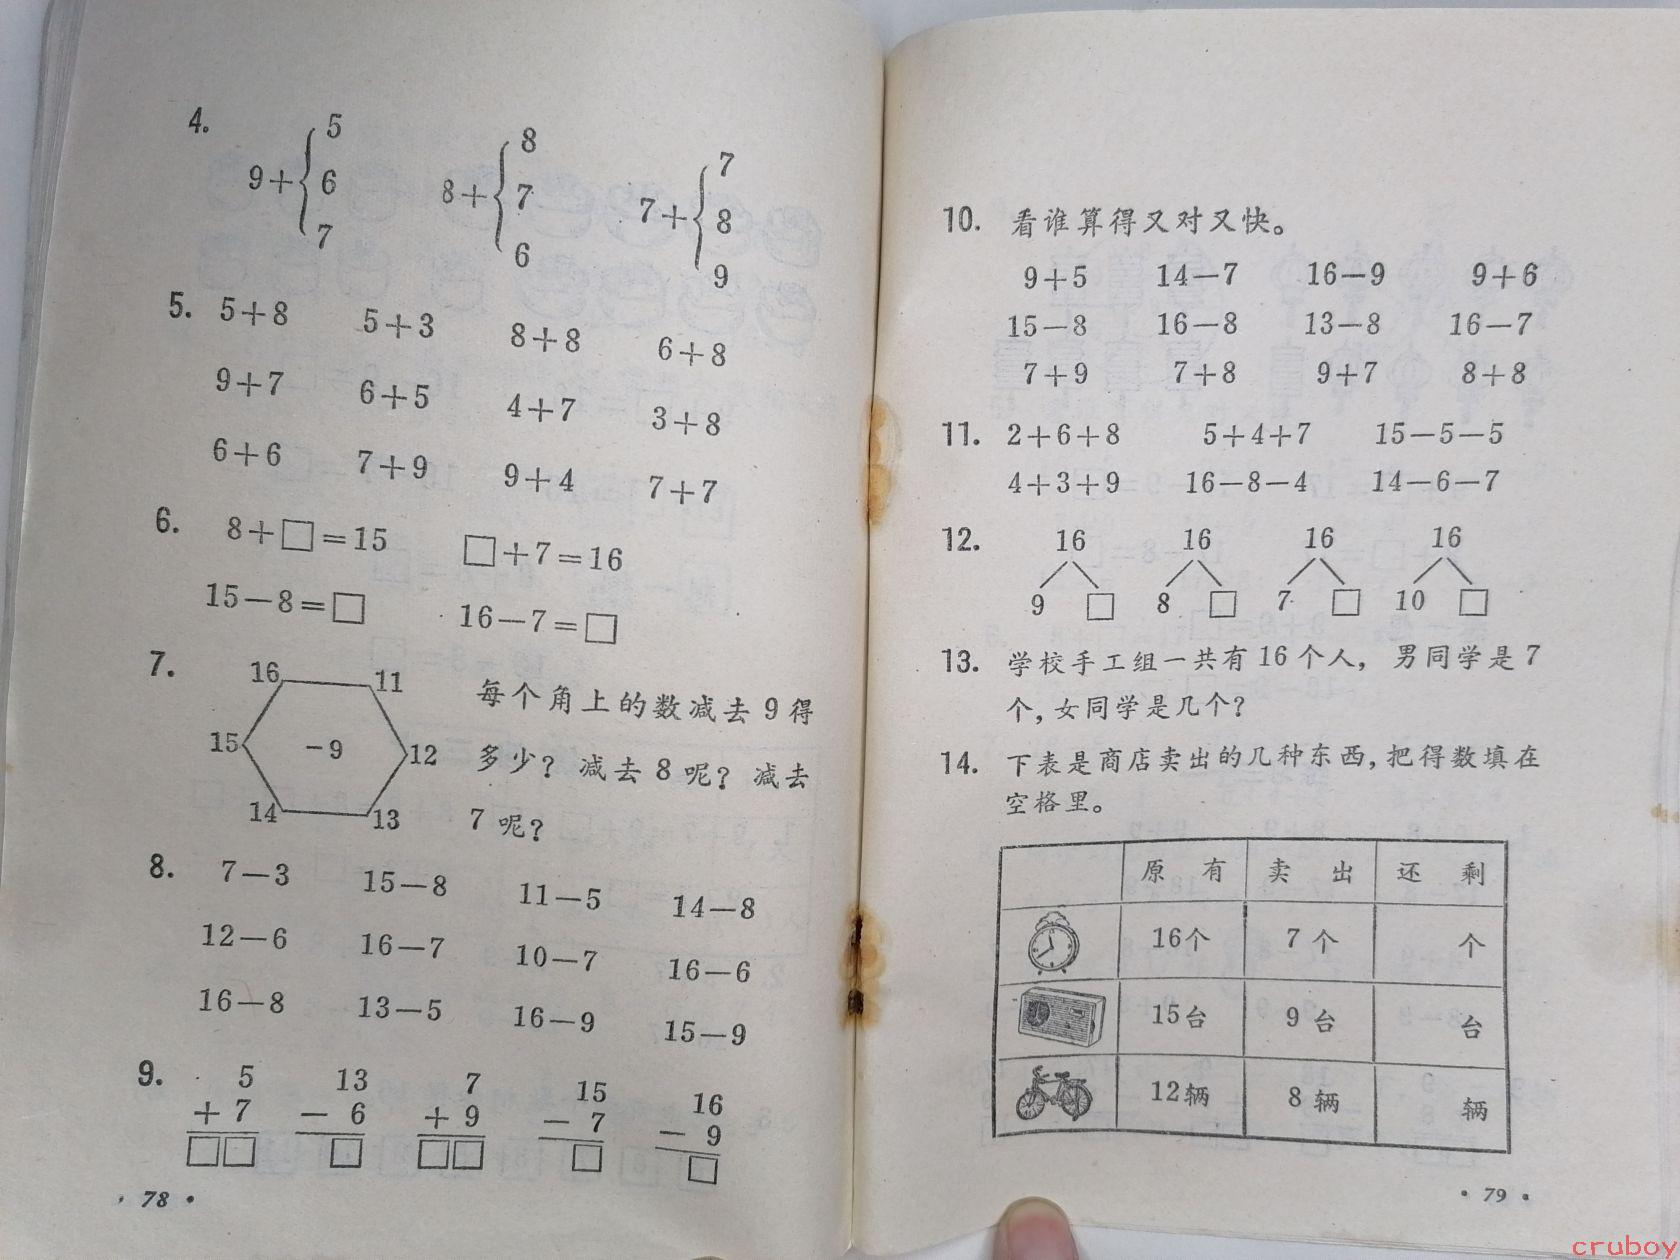 4.
9+{5 8+{8 7+{7
6 7 8
7 6 9
5. 5+8 5+3 8+8 6+8
9+7 6+5 4+7 3+8
6+6 7+9 9+4 7+7
6. 8+□=15 □+7=16
15−8=□ 16−7=□
7. 16 11
15 −9 12
14 13
每个角上的数减去9得
多少？减去8呢？减去
7呢？
8. 7−3 15−8 11−5 14−8
12−6 16−7 10−7 16−6
16−8 13−5 16−9 15−9
9. 5 13 7 15 16
+7 −6 +9 −7 −9
□□ □ □□ □ □
· 78 ·
10. 看谁算得又对又快。
9+5 14−7 16−9 9+6
15−8 16−8 13−8 16−7
7+9 7+8 9+7 8+8
11. 2+6+8 5+4+7 15−5−5
4+3+9 16−8−4 14−6−7
12. 16 16 16 16
9 □ 8 □ 7 □ 10 □
13. 学校手工组一共有16个人，男同学是7
个，女同学是几个？
14. 下表是商店卖出的几种东西，把得数填在
空格里。
原有 卖出 还剩
16个 7个 个
15台 9台 台
12辆 8辆 辆
· 79 ·
cruboy